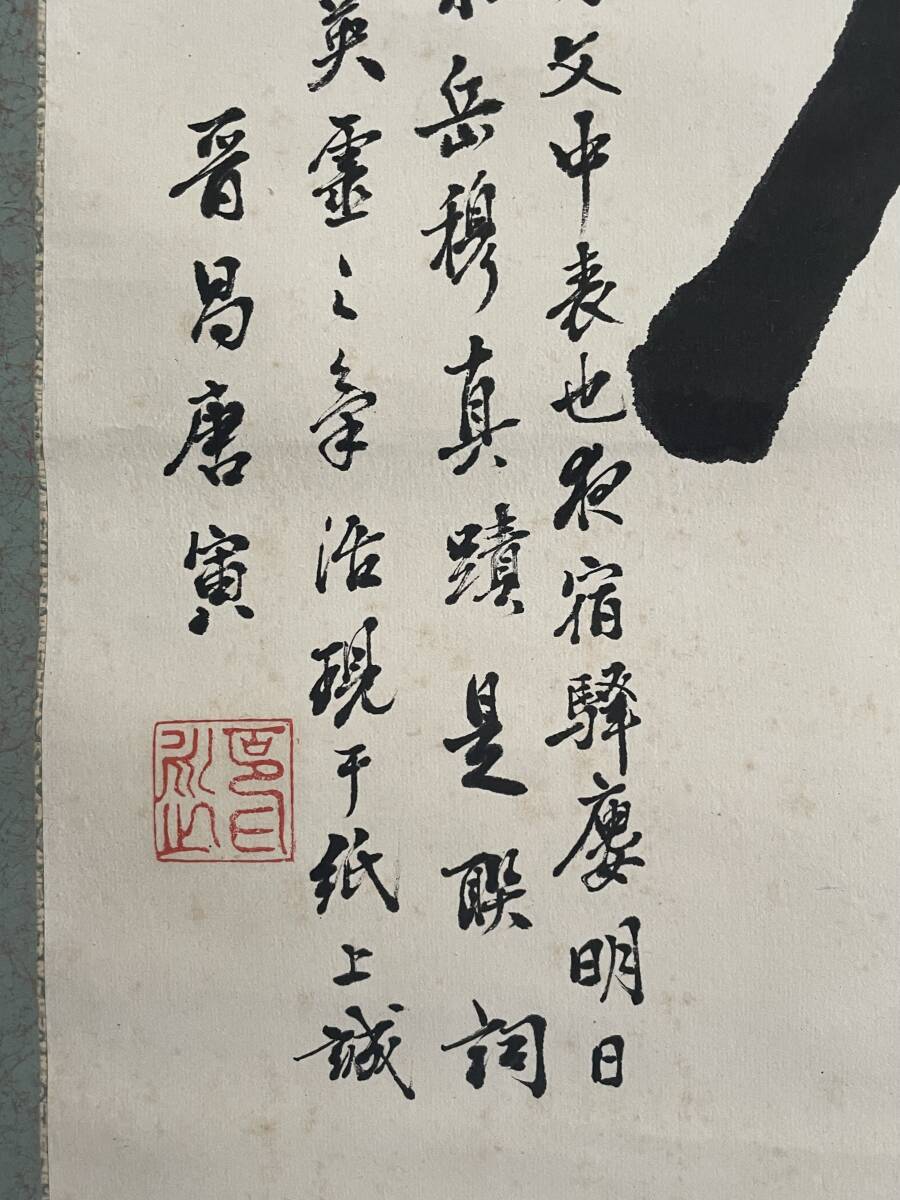 文中表也夜宿驛廔明日
岳穆真蹟是聯詞
英靈之氣活現于紙上誠
晋昌唐寅